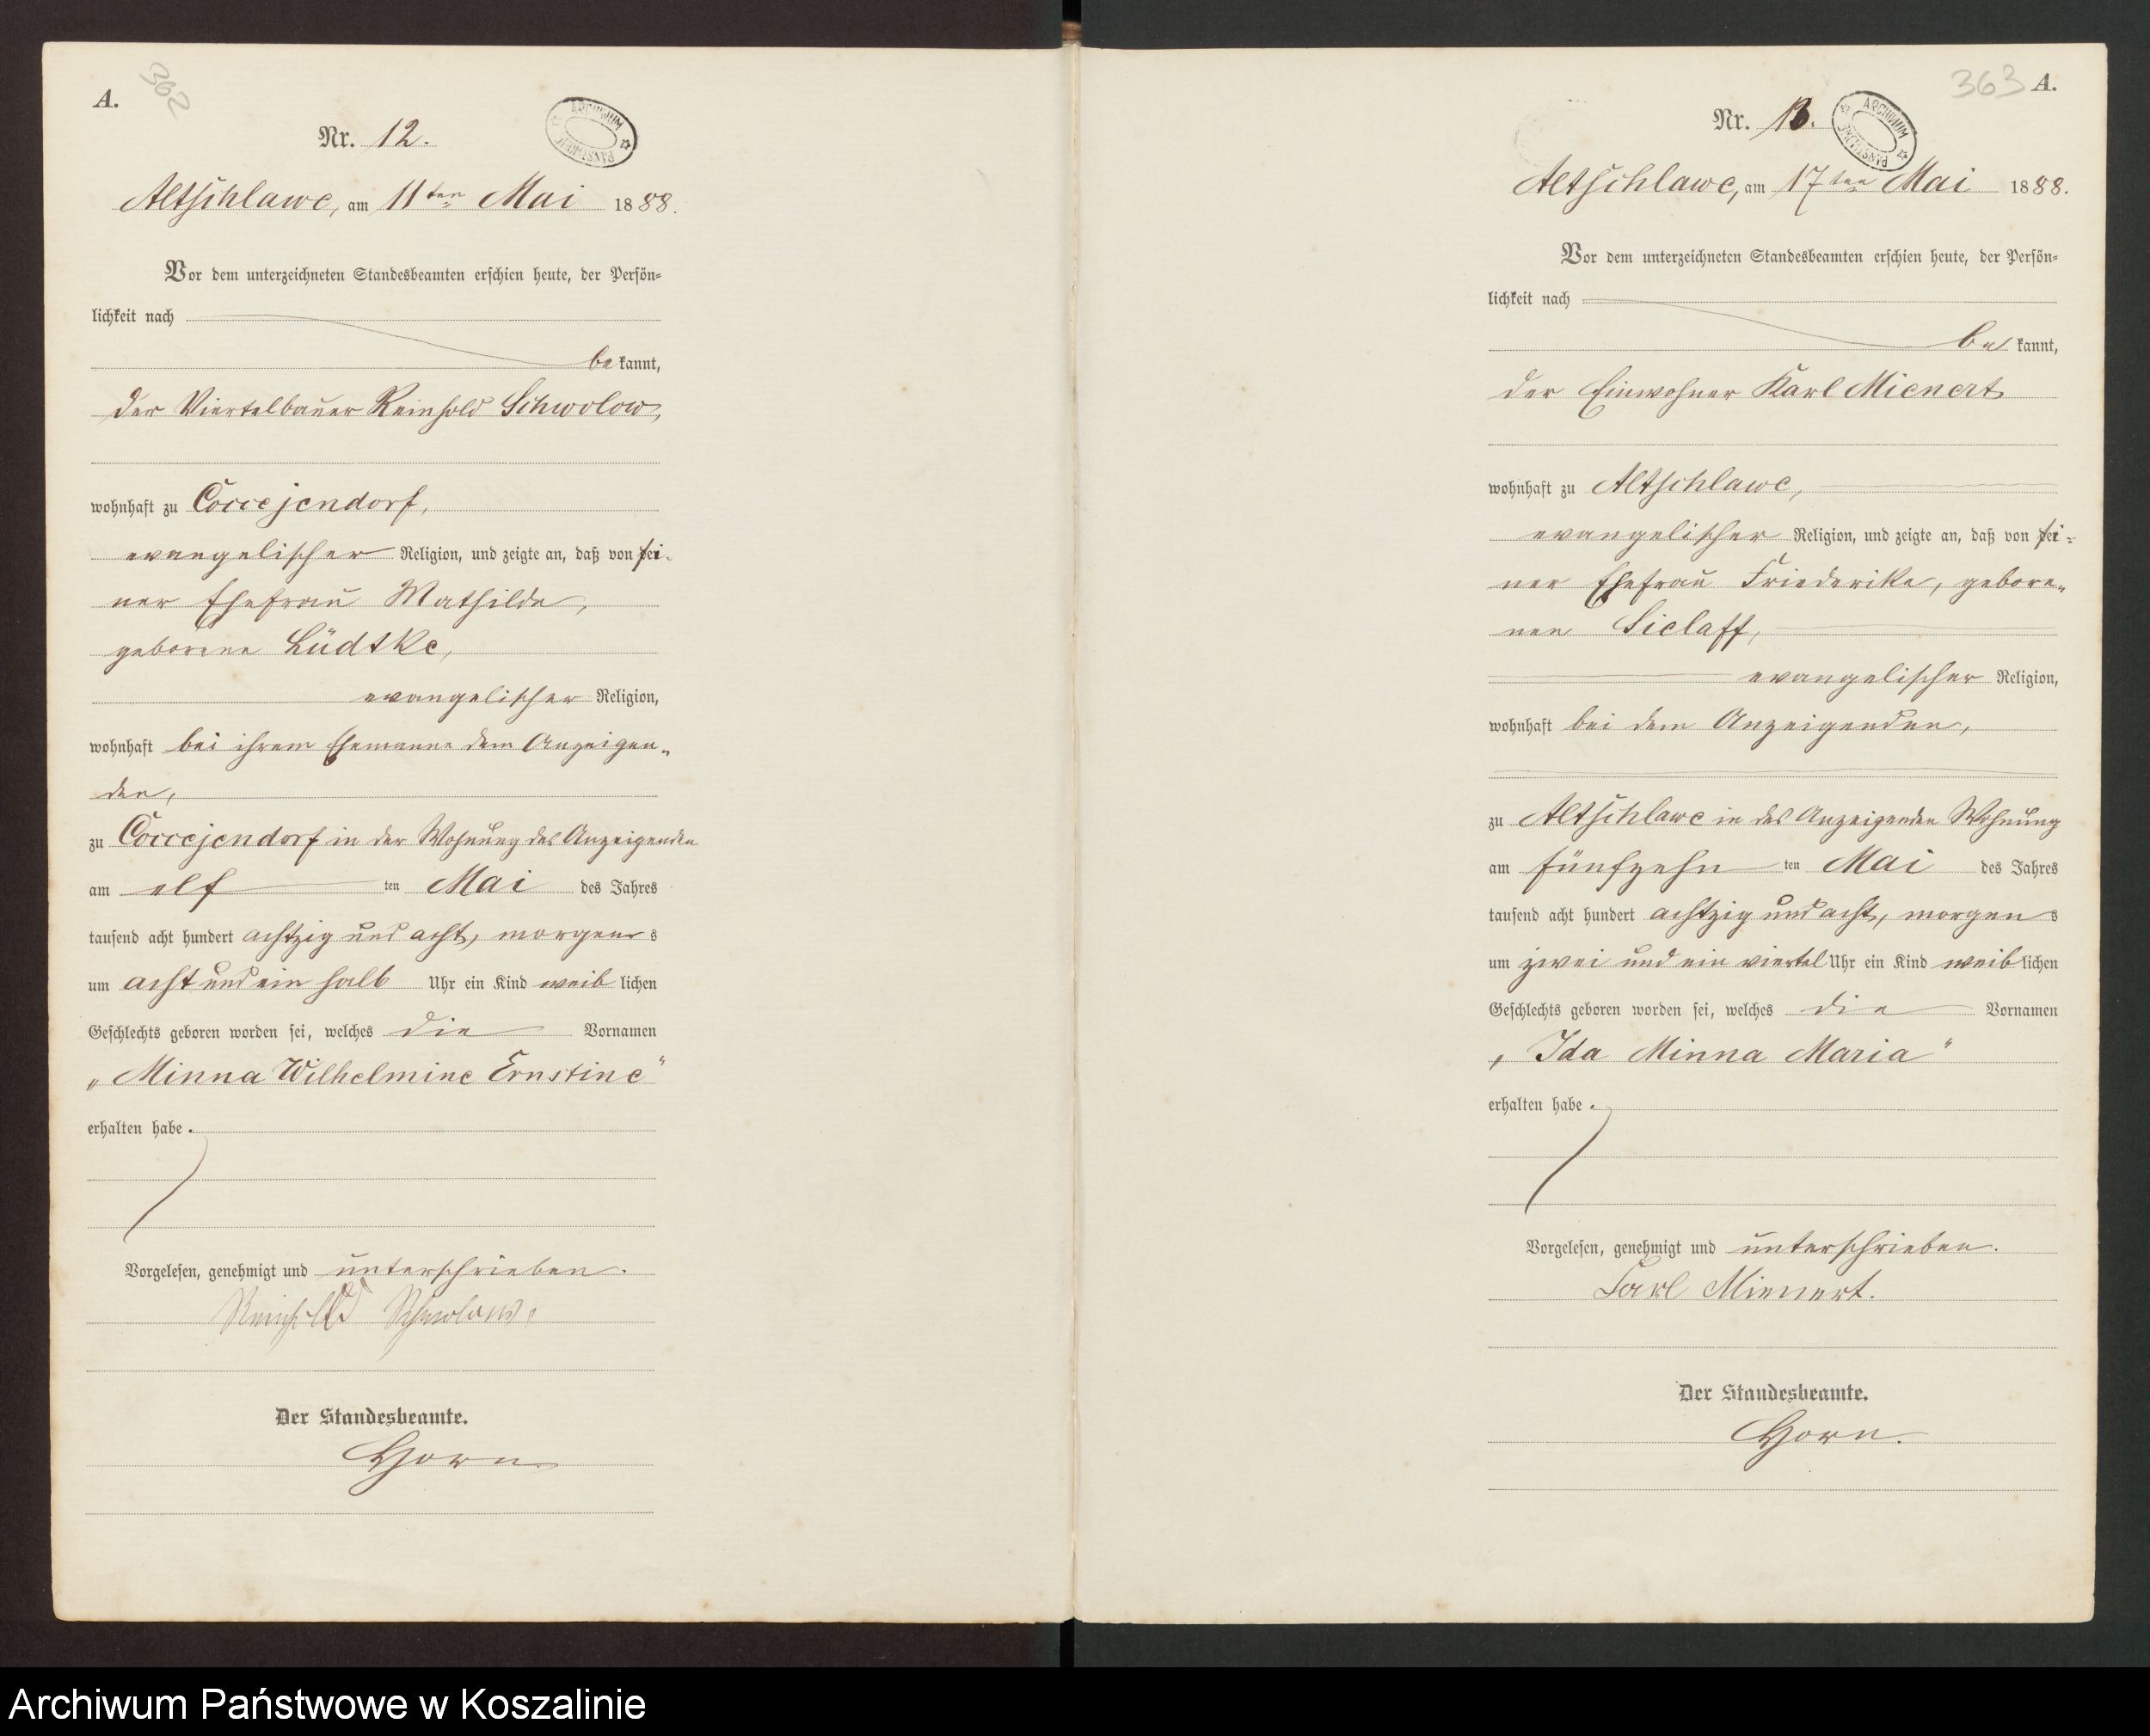 A.
362
Nr. 12.
ARCHIWUM PAŃSTWOWE
Altschlawe, am 11ten Mai 1888.
Vor dem unterzeichneten Standesbeamten erschien heute, der Persön-
lichkeit nach
bekannt,
der Viertelbauer Reinhold Schwolow,
wohnhaft zu Coccejendorf,
evangelischer Religion, und zeigte an, daß von sei-
ner Ehefrau Mathilde,
geborene Lüdtke,
evangelischer Religion,
wohnhaft bei ihrem Ehemanne dem Anzeigen-
den,
zu Coccejendorf in der Wohnung des Anzeigenden
am elf ten Mai des Jahres
tausend acht hundert achtzig und acht, morgens
um acht und ein halb Uhr ein Kind weiblichen
Geschlechts geboren worden sei, welches die Vornamen
„Minna Wilhelmine Ernstine"
erhalten habe.
Vorgelesen, genehmigt und unterschrieben.
Reinhold Schwolow.
Der Standesbeamte.
Horn
363
A.
Nr. 13.
ARCHIWUM PAŃSTWOWE
Altschlawe, am 17ten Mai 1888.
Vor dem unterzeichneten Standesbeamten erschien heute, der Persön-
lichkeit nach
bekannt,
der Einwohner Karl Mienert
wohnhaft zu Altschlawe,
evangelischer Religion, und zeigte an, daß von sei-
ner Ehefrau Friederike, gebore-
nen Sielaff,
evangelischer Religion,
wohnhaft bei dem Anzeigenden,
zu Altschlawe in des Anzeigenden Wohnung
am fünfzehn ten Mai des Jahres
tausend acht hundert achtzig und acht, morgens
um zwei und ein viertel Uhr ein Kind weiblichen
Geschlechts geboren worden sei, welches die Vornamen
„Ida Minna Maria"
erhalten habe.
Vorgelesen, genehmigt und unterschrieben.
Carl Mienert.
Der Standesbeamte.
Horn.
Archiwum Państwowe w Koszalinie